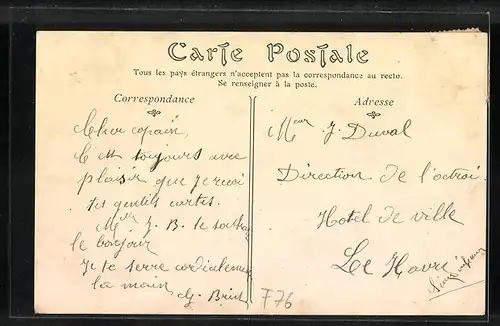 Carte Postale
Tous les pays étrangers n'acceptent pas la correspondance au recto.
Se renseigner à la poste.
Correspondance
Cher copain,
C'est toujours avec
plaisir que je reçois
tes gentils cartes.
J. B. te souhaite
le bonjour
Je te serre cordialement
la main
Adresse
Mieur J. Duval
Direction de l'octroi
Hotel de ville
Le Havre
F76